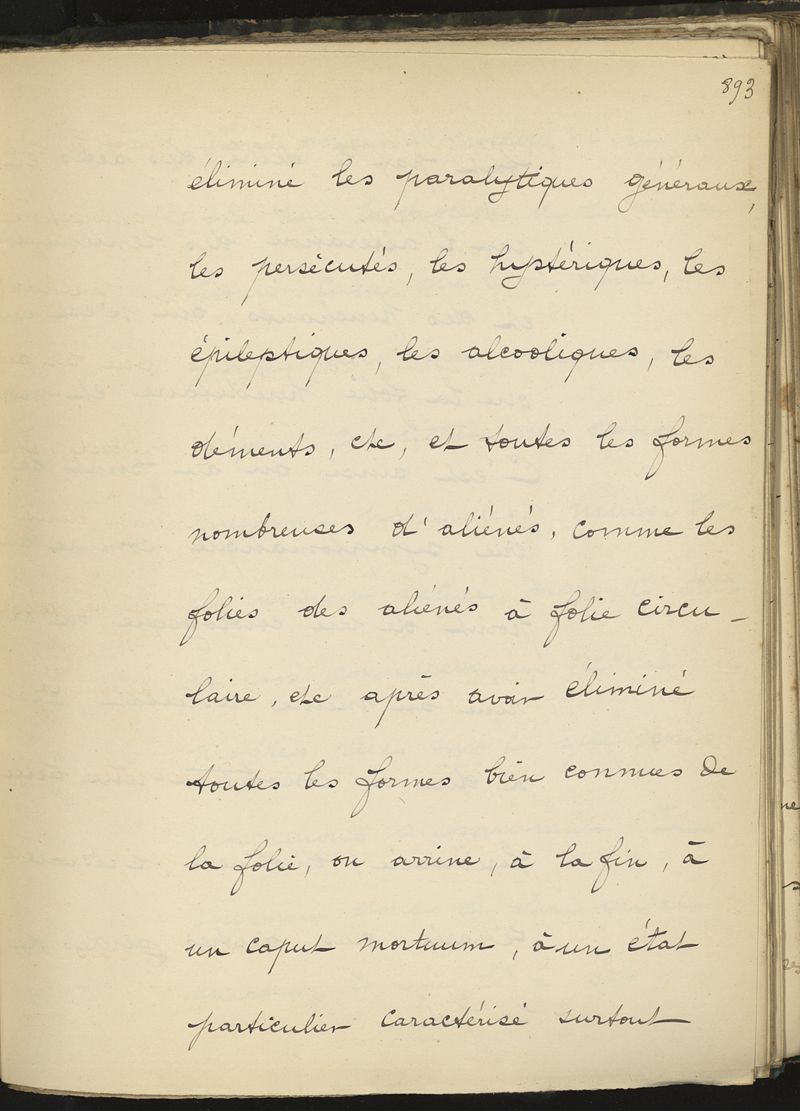 893
éliminé les paralytiques généraux,
les persécutés, les hystériques, les
épileptiques, les alcooliques, les
déments, etc, et toutes les formes
nombreuses d'aliénés, comme les
folies des aliénés à folie circu-
laire, etc après avoir éliminé
toutes les formes bien connues de
la folie, on arrive, à la fin, à
un caput mortuum, à un état
particulier caractérisé surtout